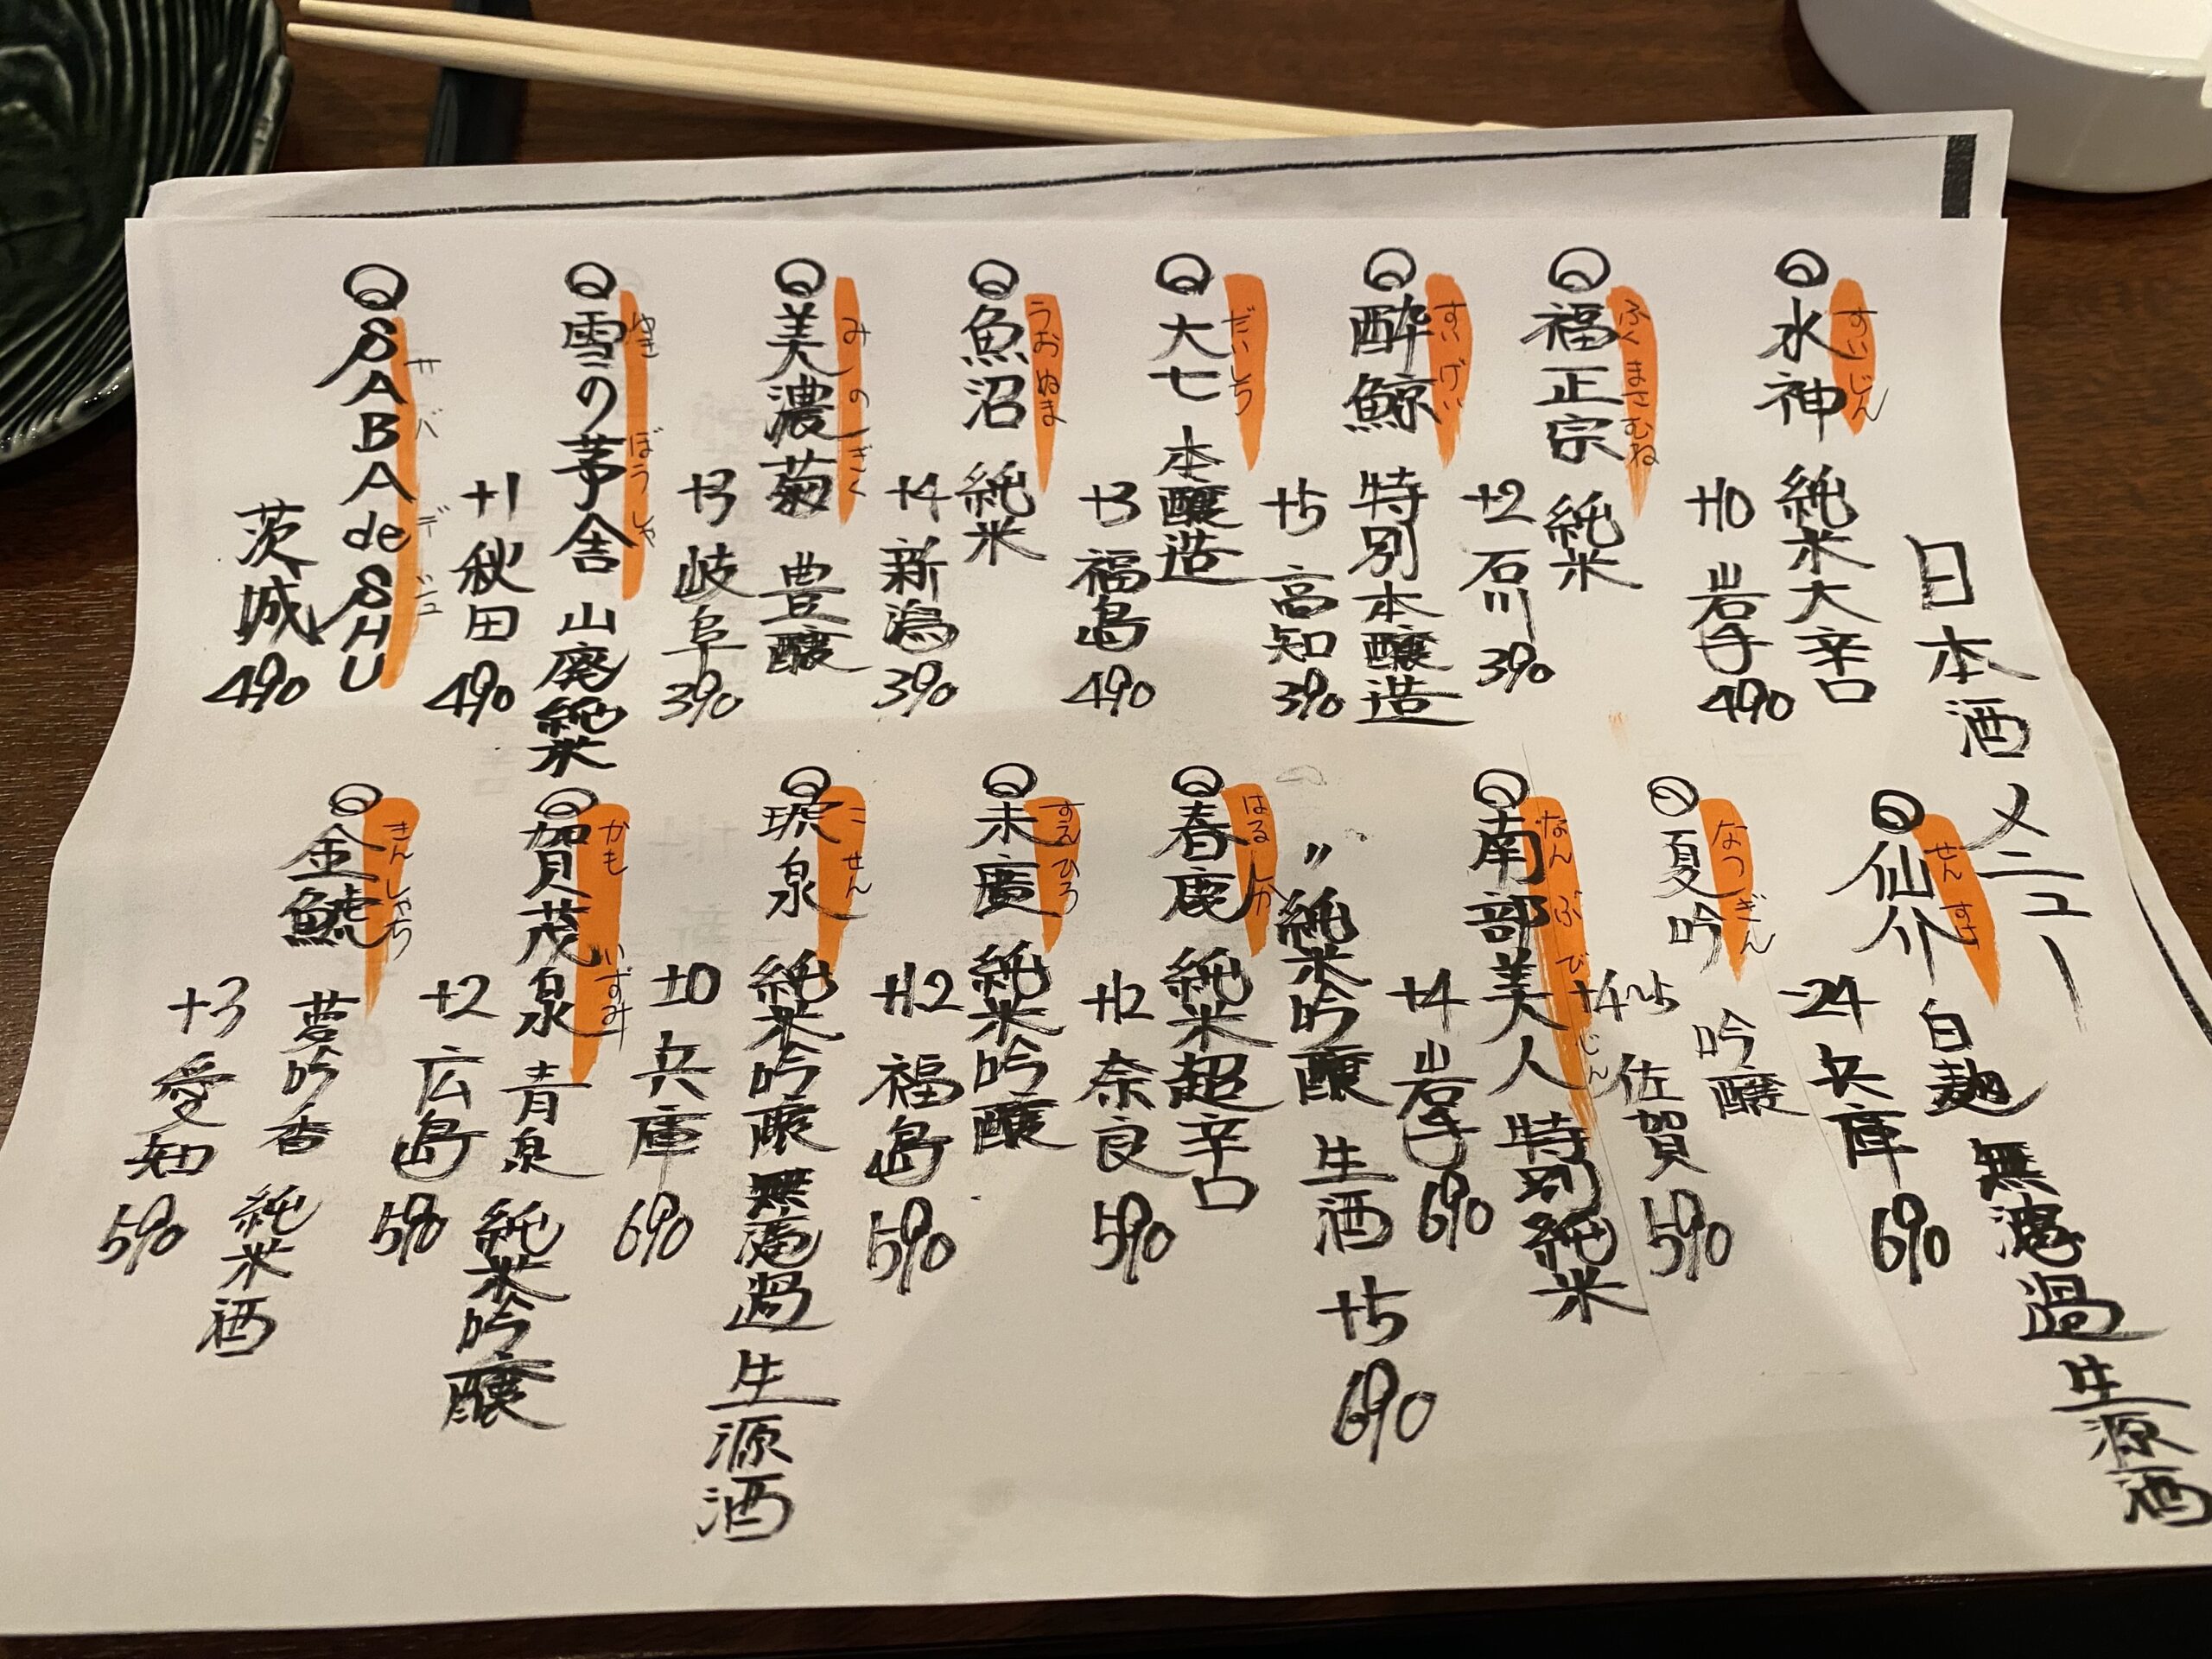 日本酒メニュー
水神 純米大辛口
すいじん
+10 岩手 490
福正宗 純米
ふくまさむね
+2 石川 390
酔鯨 特別本醸造
すいげい
+5 高知 390
大七 本醸造
だいしち
+3 福島 490
魚沼 純米
うおぬま
+4 新潟 390
美濃菊 豊醸
みのぎく
+3 岐阜 390
雪の茅舎 山廃純米
ゆき ぼうしゃ
+1 秋田 490
SABA de SHU
サバ デ シュ
茨城 490
仙介 白麹 無濾過生源酒
せんすけ
-24 兵庫 690
夏吟 吟醸
なつぎん
佐賀 590
南部美人 特別純米
なんぶびじん
+4 岩手 690
〃 純米吟醸 生酒 +5 690
春鹿 純米超辛口
はるしか
+12 奈良 590
末廣 純米吟醸
すえひろ
+12 福島 590
琥泉 純米吟醸 無濾過 生源酒
こせん
±0 兵庫 690
賀茂泉 青泉 純米吟醸
かも いずみ
+2 広島 590
金鯱 夢吟香 純米酒
きんしゃち
+3 愛知 590